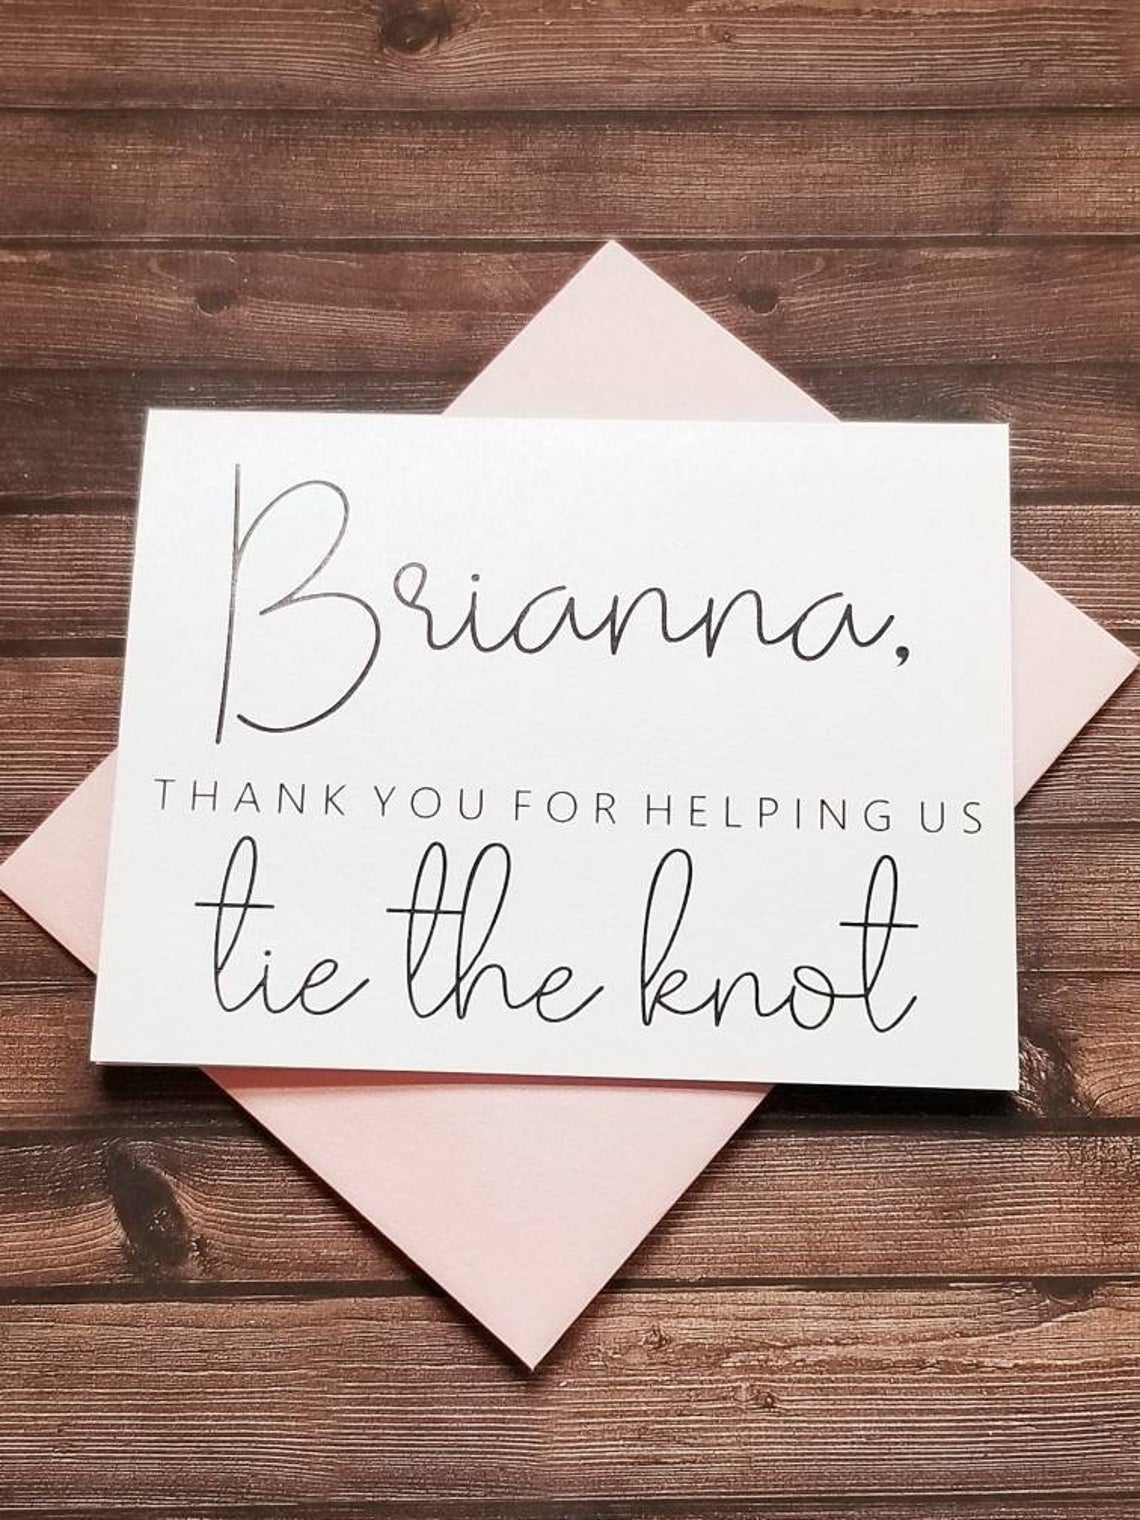 Brianna,
THANK YOU FOR HELPING US
tie the knot